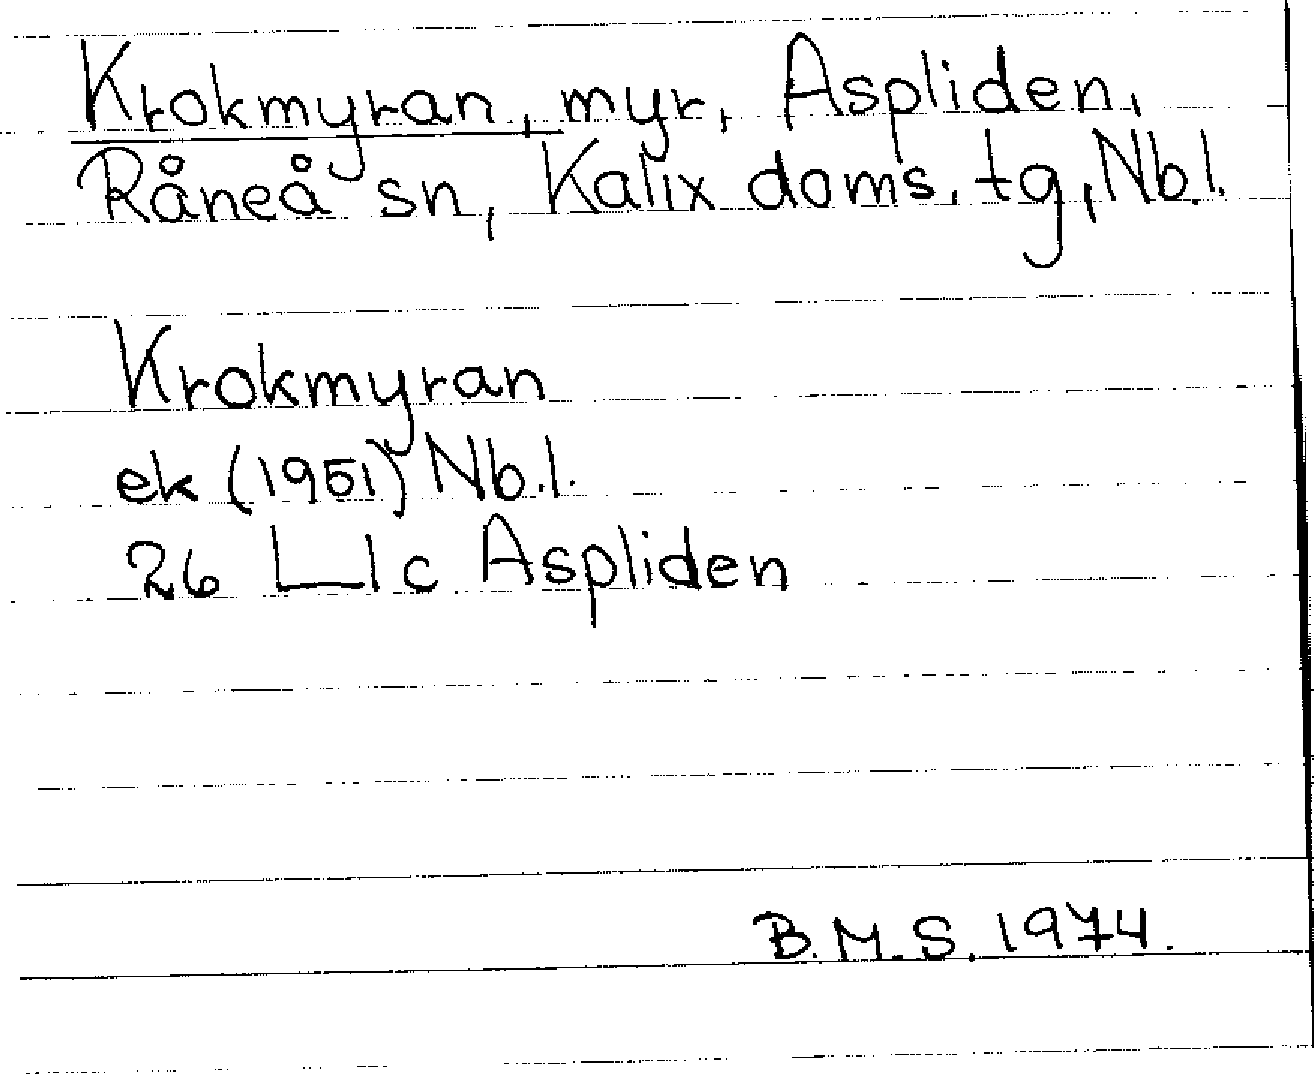 Krokmyran, myr, Aspliden,
Råneå sn, Kalix doms. tg, Nb.l.
Krokmyran
ek (1951) Nb.l.
26 L I c Aspliden
B.M.S. 1974.